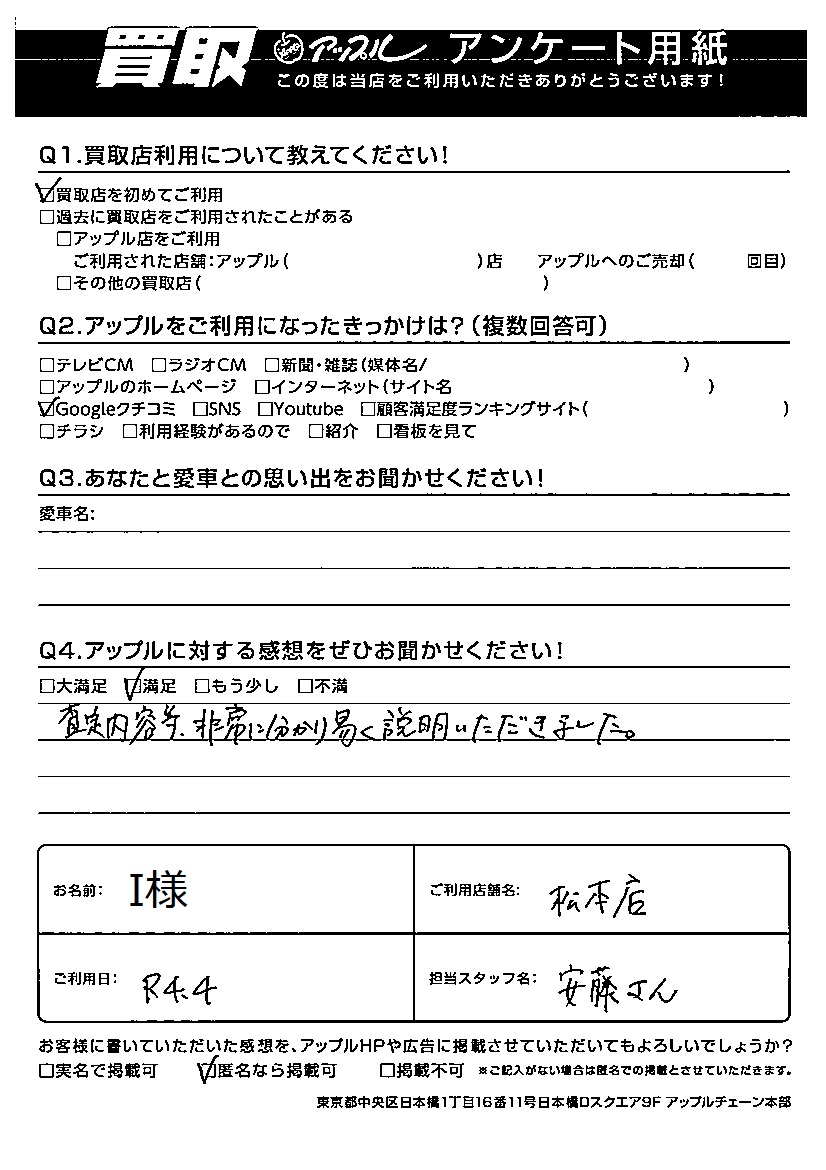 買取 アップル アンケート用紙
この度は当店をご利用いただきありがとうございます！
Q1.買取店利用について教えてください！
☑買取店を初めてご利用
□過去に買取店をご利用されたことがある
□アップル店をご利用
ご利用された店舗：アップル（ ）店 アップルへのご売却（ 回目）
□その他の買取店（ ）
Q2.アップルをご利用になったきっかけは？（複数回答可）
□テレビCM □ラジオCM □新聞・雑誌（媒体名/ ）
□アップルのホームページ □インターネット（サイト名 ）
☑Googleクチコミ □SNS □Youtube □顧客満足度ランキングサイト（ ）
□チラシ □利用経験があるので □紹介 □看板を見て
Q3.あなたと愛車との思い出をお聞かせください！
愛車名：
Q4.アップルに対する感想をぜひお聞かせください！
□大満足 ☑満足 □もう少し □不満
査定内容等、非常に分かり易く説明いただきました。
お名前： I様 ご利用店舗名： 松本店
ご利用日： R4.4 担当スタッフ名： 安藤さん
お客様に書いていただいた感想を、アップルHPや広告に掲載させていただいてもよろしいでしょうか？
□実名で掲載可 ☑匿名なら掲載可 □掲載不可 ※ご記入がない場合は匿名での掲載とさせていただきます。
東京都中央区日本橋1丁目16番11号日本橋Dスクエア9F アップルチェーン本部